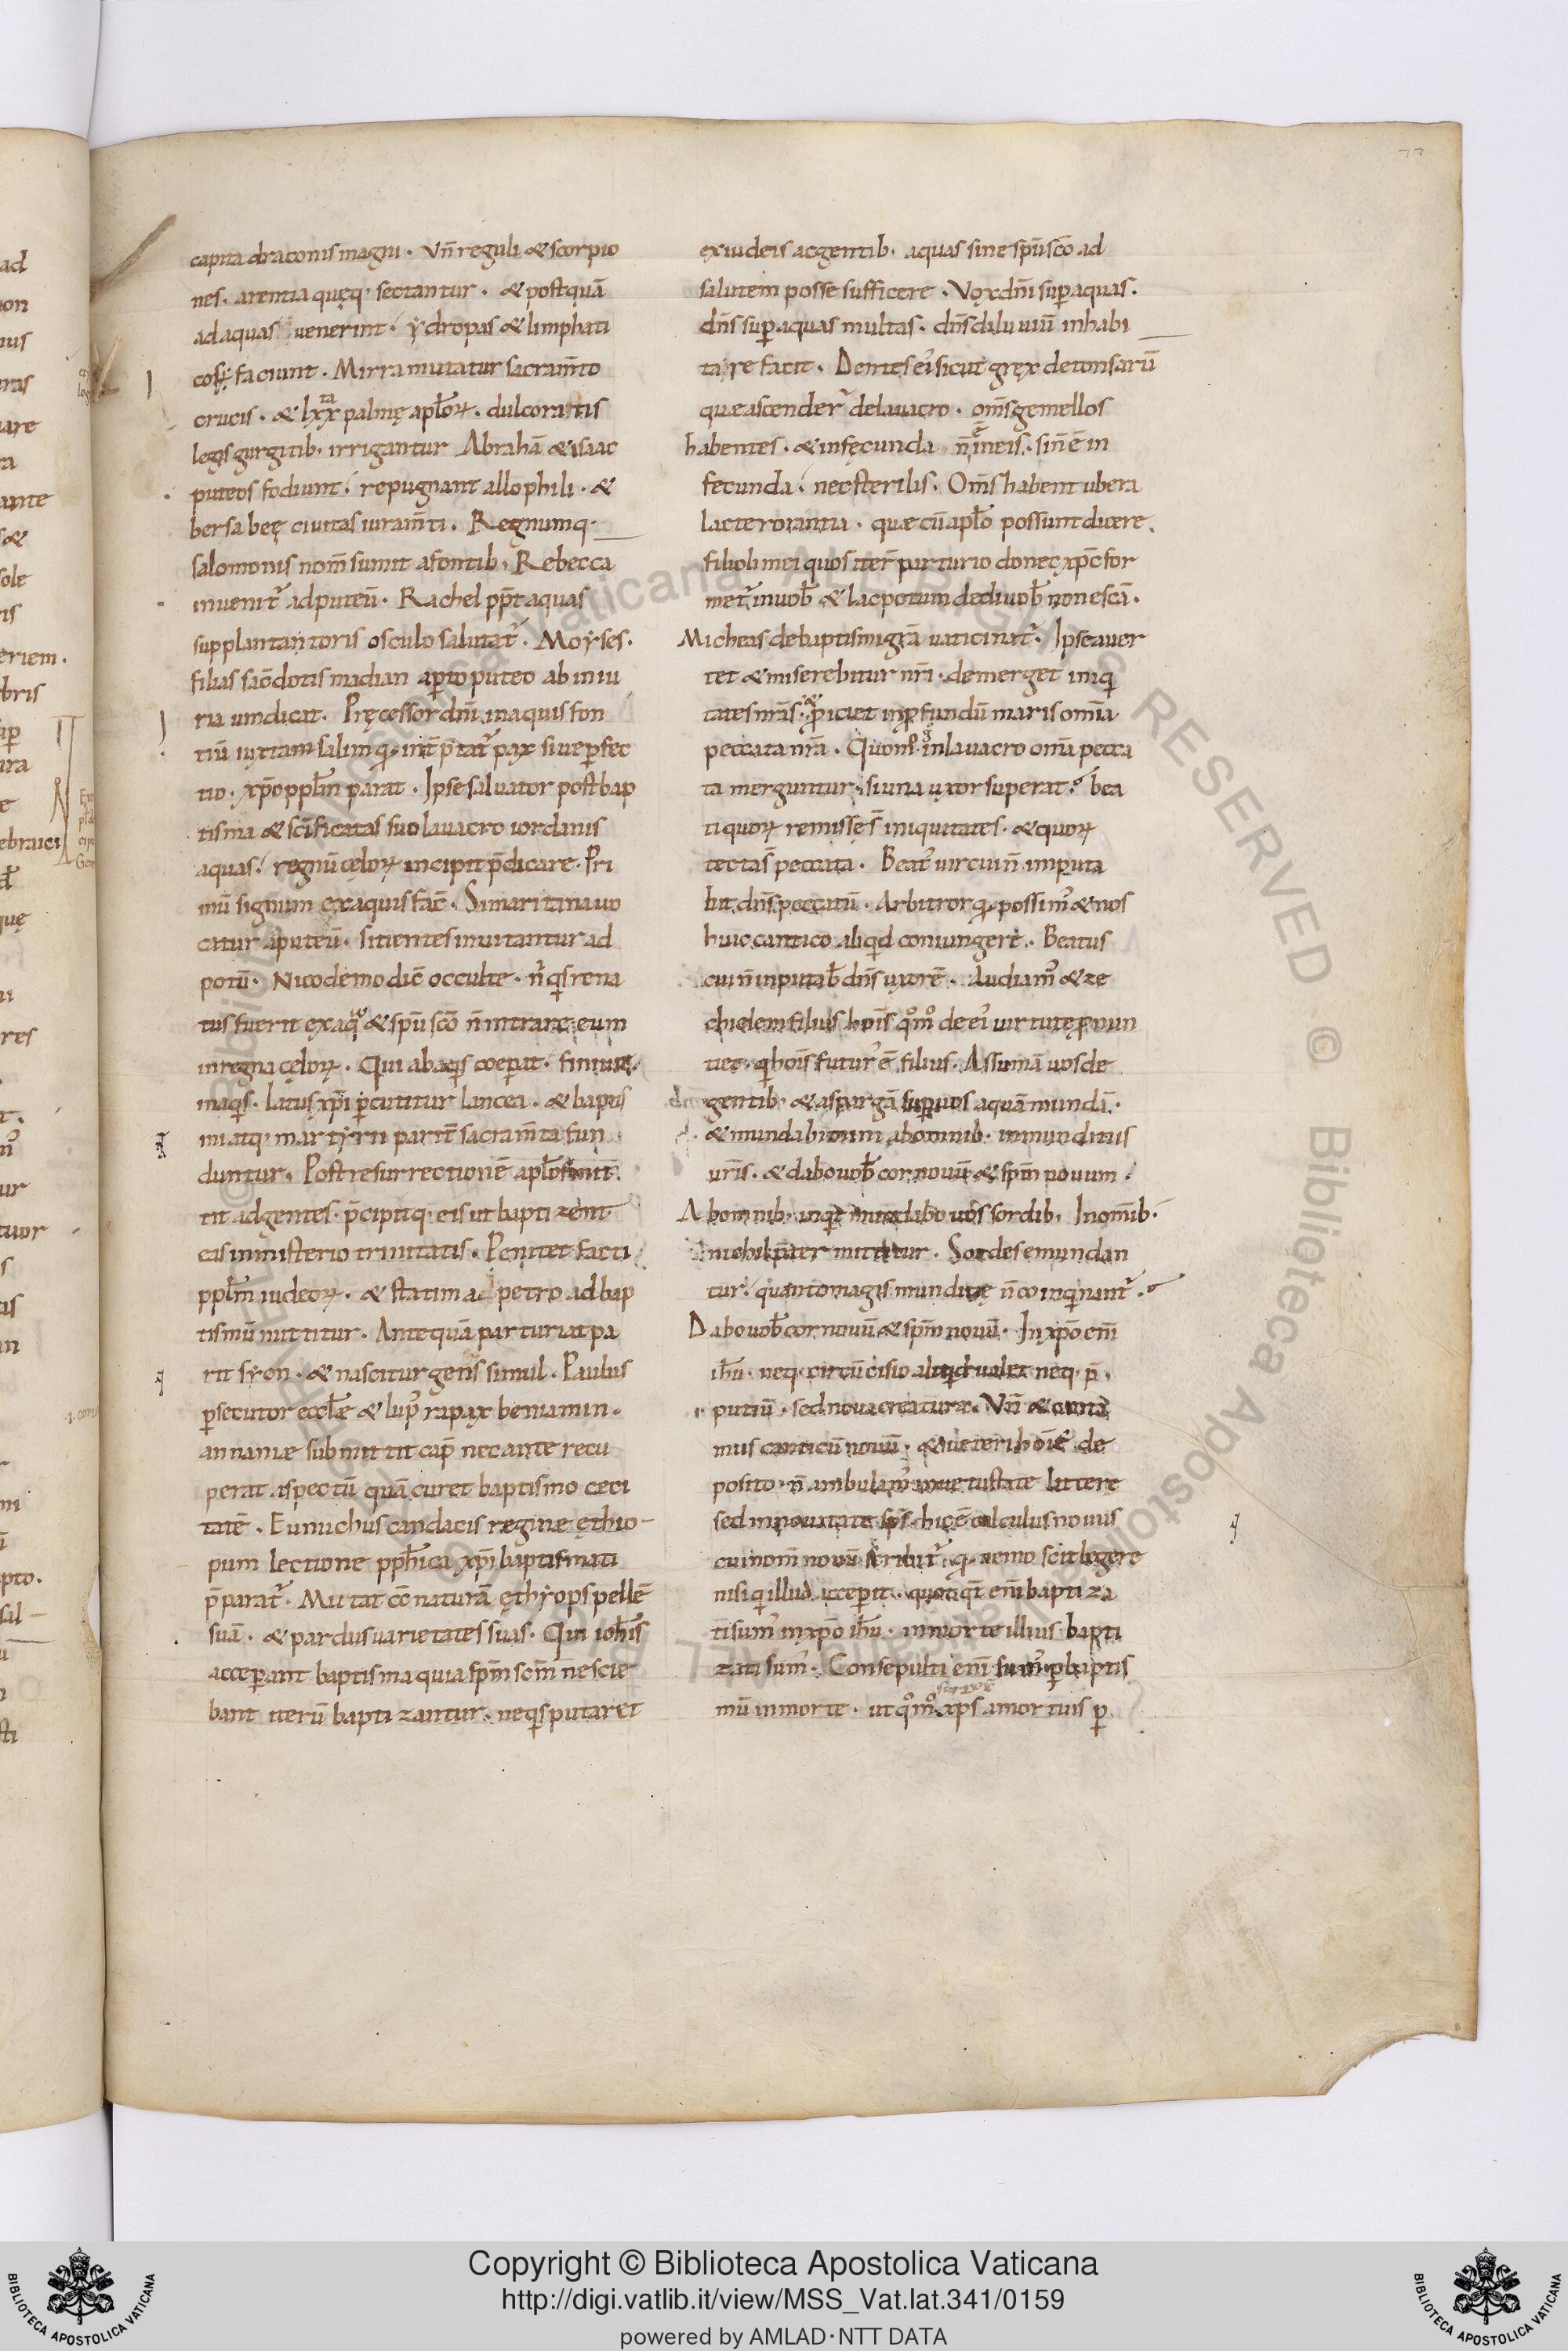 capita draconis magni. Vn̄ reguli & scorpio
nes. arentia quęq; sectantur. & postquā
ad aquas uenerint. ydropas & limphati
cos faciunt. Mirra mutatur sacram̄to
crucis. & lxx palmę apl̄oꝝ. dulcoratis
legis gurgitib; irrigantur Abrahā & isaac
puteos fodiunt. repugnant allophili. &
bersabeę ciuitas iuram̄ti. Regnumq;
salomonis nom̄ sumit a fontib; Rebecca
inuenit᷑ ad puteū. Rachel ꝓpt̄ aquas
supplantatoris osculo salutat᷑. Moyses.
filias sac̄dotis madian aꝑto puteo ab iniu
ria uindicat. Pręcessor dn̄i. in aquis fon
tiū iuxta salim q int̄p̄tat᷑ pax siue ꝑfec
tio. xp̄o ppl̄m parat. Ipse saluator post bap
tisma & sc̄ificatas suo lauacro iordanis
aquas. regnū cęloꝝ incipit p̄dicare. Pri
mū signum ex aquis fac̄. Samaritana uo
catur a puteū. sitientes inuitantur ad
potū. Nicodemo dic̄ occulte. n̄ qs rena
tus fuerit ex aq & spū sc̄o n̄ intrare eum
in regna cęloꝝ. Qui ab aqs coeꝑat. finiuit
in aqs. latus xp̄i ꝑcutitur lancea. & baptis
mi atq; martyrii parit̄ sacram̄ta fun
duntur. Post resurrectionē apl̄os mit
tit ad gentes. p̄cipitq; eis ut baptizent
eas in misterio trinitatis. Penitet facti
ppl̄m iudeoꝝ. & statim a petro ad bap
tismū mittitur. Antequā parturiat pa
rit syon. & nascitur gens simul. Paulus
ꝑsecutor eccl̄æ & lup᷑ rapax beniamin.
annaniæ submittit cap̄ nec ante recu
perat aspectū quā curet baptismo ceci
tatē. Eunuchus candacis reginæ ęthio-
pum lectione pph̄ica xp̄i baptismati
p̄parat᷑. Mutat cō naturā ęthyops pellē
suā. & pardus uarietates suas. Qui ioh̄is
acceꝑant baptisma quia sp̄m sc̄m nescie
bant iterū baptizantur. ne qs putaret
ex iudeis ac gentib; aquas sine spū sc̄o ad
salutem posse sufficere. Vox dn̄i suꝑ aquas.
dn̄s suꝑ aquas multas. dn̄s diluuiū inhabi
tare facit. Dentes ei᷑ sicut grex detonsarū
quæ ascender᷑ de lauacro. om̄s gemellos
habentes. & infęcunda n̄ ē in eis. si n̄ ē in
fecunda. nec sterilis. Om̄s habent ubera
lacte rorantia. quæ cū apl̄o possunt dicere.
filioli mei quos iter̄ parturio donec xp̄c for
met᷑ in uob̄ & lac potum dedi uob̄ non escā.
Micheas de baptismi gr̄a uaticinat᷑. Ipse auer
tet & miserebitur nr̄i. demerget iniq
tates nr̄as. & ꝓiciet in ꝓfundū maris om̄ia
peccata nr̄a. Quom̊ g in lauacro om̄a pecca
ta merguntur. si una uxor superat? bea
ti quoꝝ remissę s̄ iniquitates. & quoꝝ
tecta s̄ peccata. Beat᷑ uir cui n̄ imputa
bit dn̄s peccatū. Arbitror q possim᷑ & nos
huic cantico aliqd coniungere. Beatus
cui n̄ inputab̄ dn̄s uxorē. Audiam᷑ & ze
chielem filius ho̅is qm̊ de ei᷑ uirtute ꝓnun
tiet. q ho̅is futur᷑ ē filius. Assumā uos de
gentib; & aspargā suꝑ uos aquā mundā.
& mundabimini ab omnib; inmunditiis
ur̄is. & dabo uob̄ cor nouū & sp̄m nouum.
Ab omnib; inqt mundabo uos sordib; In om̄ib;
nichil p̄ter mittitur. Sordes emundan
tur. quanto magis munditię n̄ coinqnant᷑.
Dabo uob̄ cor nouū & sp̄m nouū. In xp̄o en̄i
ih̄u. neq; circūcisio aliqd ualet neq; p̄
putiū. sed noua creatura. Vn̄ & canta
mus canticū nouū. & ueteri ho̅ie de
posito. n̄ ambulam᷑ in uetustate littere
sed in nouitate sp̄s. hic ē calculus nouus
cui nom̄ nouū scribit᷑. q nemo scit legere
nisi q illud acceꝑit. quotqt en̄i baptiza
ti sum᷑ in xp̄o ih̄u. in morte illius bapti
zati sum᷑. Consepulti en̄i sum᷑ ꝑ baptis
mū in morte. ut qm̊ xp̄s a mortuis ꝑ
Copyright © Biblioteca Apostolica Vaticana
http://digi.vatlib.it/view/MSS_Vat.lat.341/0159
powered by AMLAD·NTT DATA